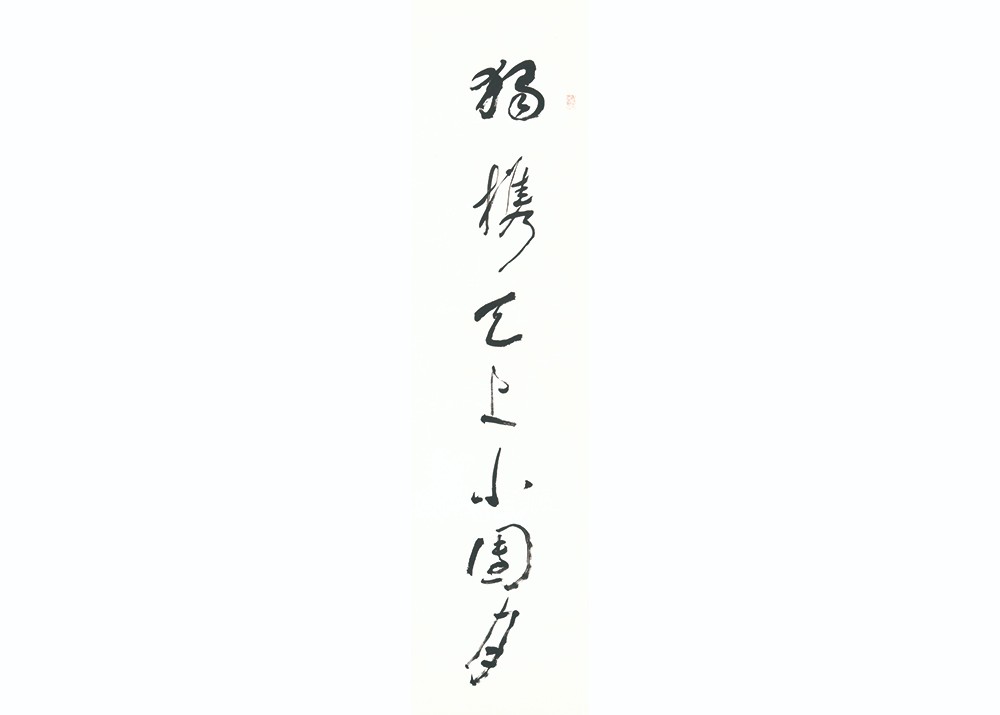 獨携天上小團月